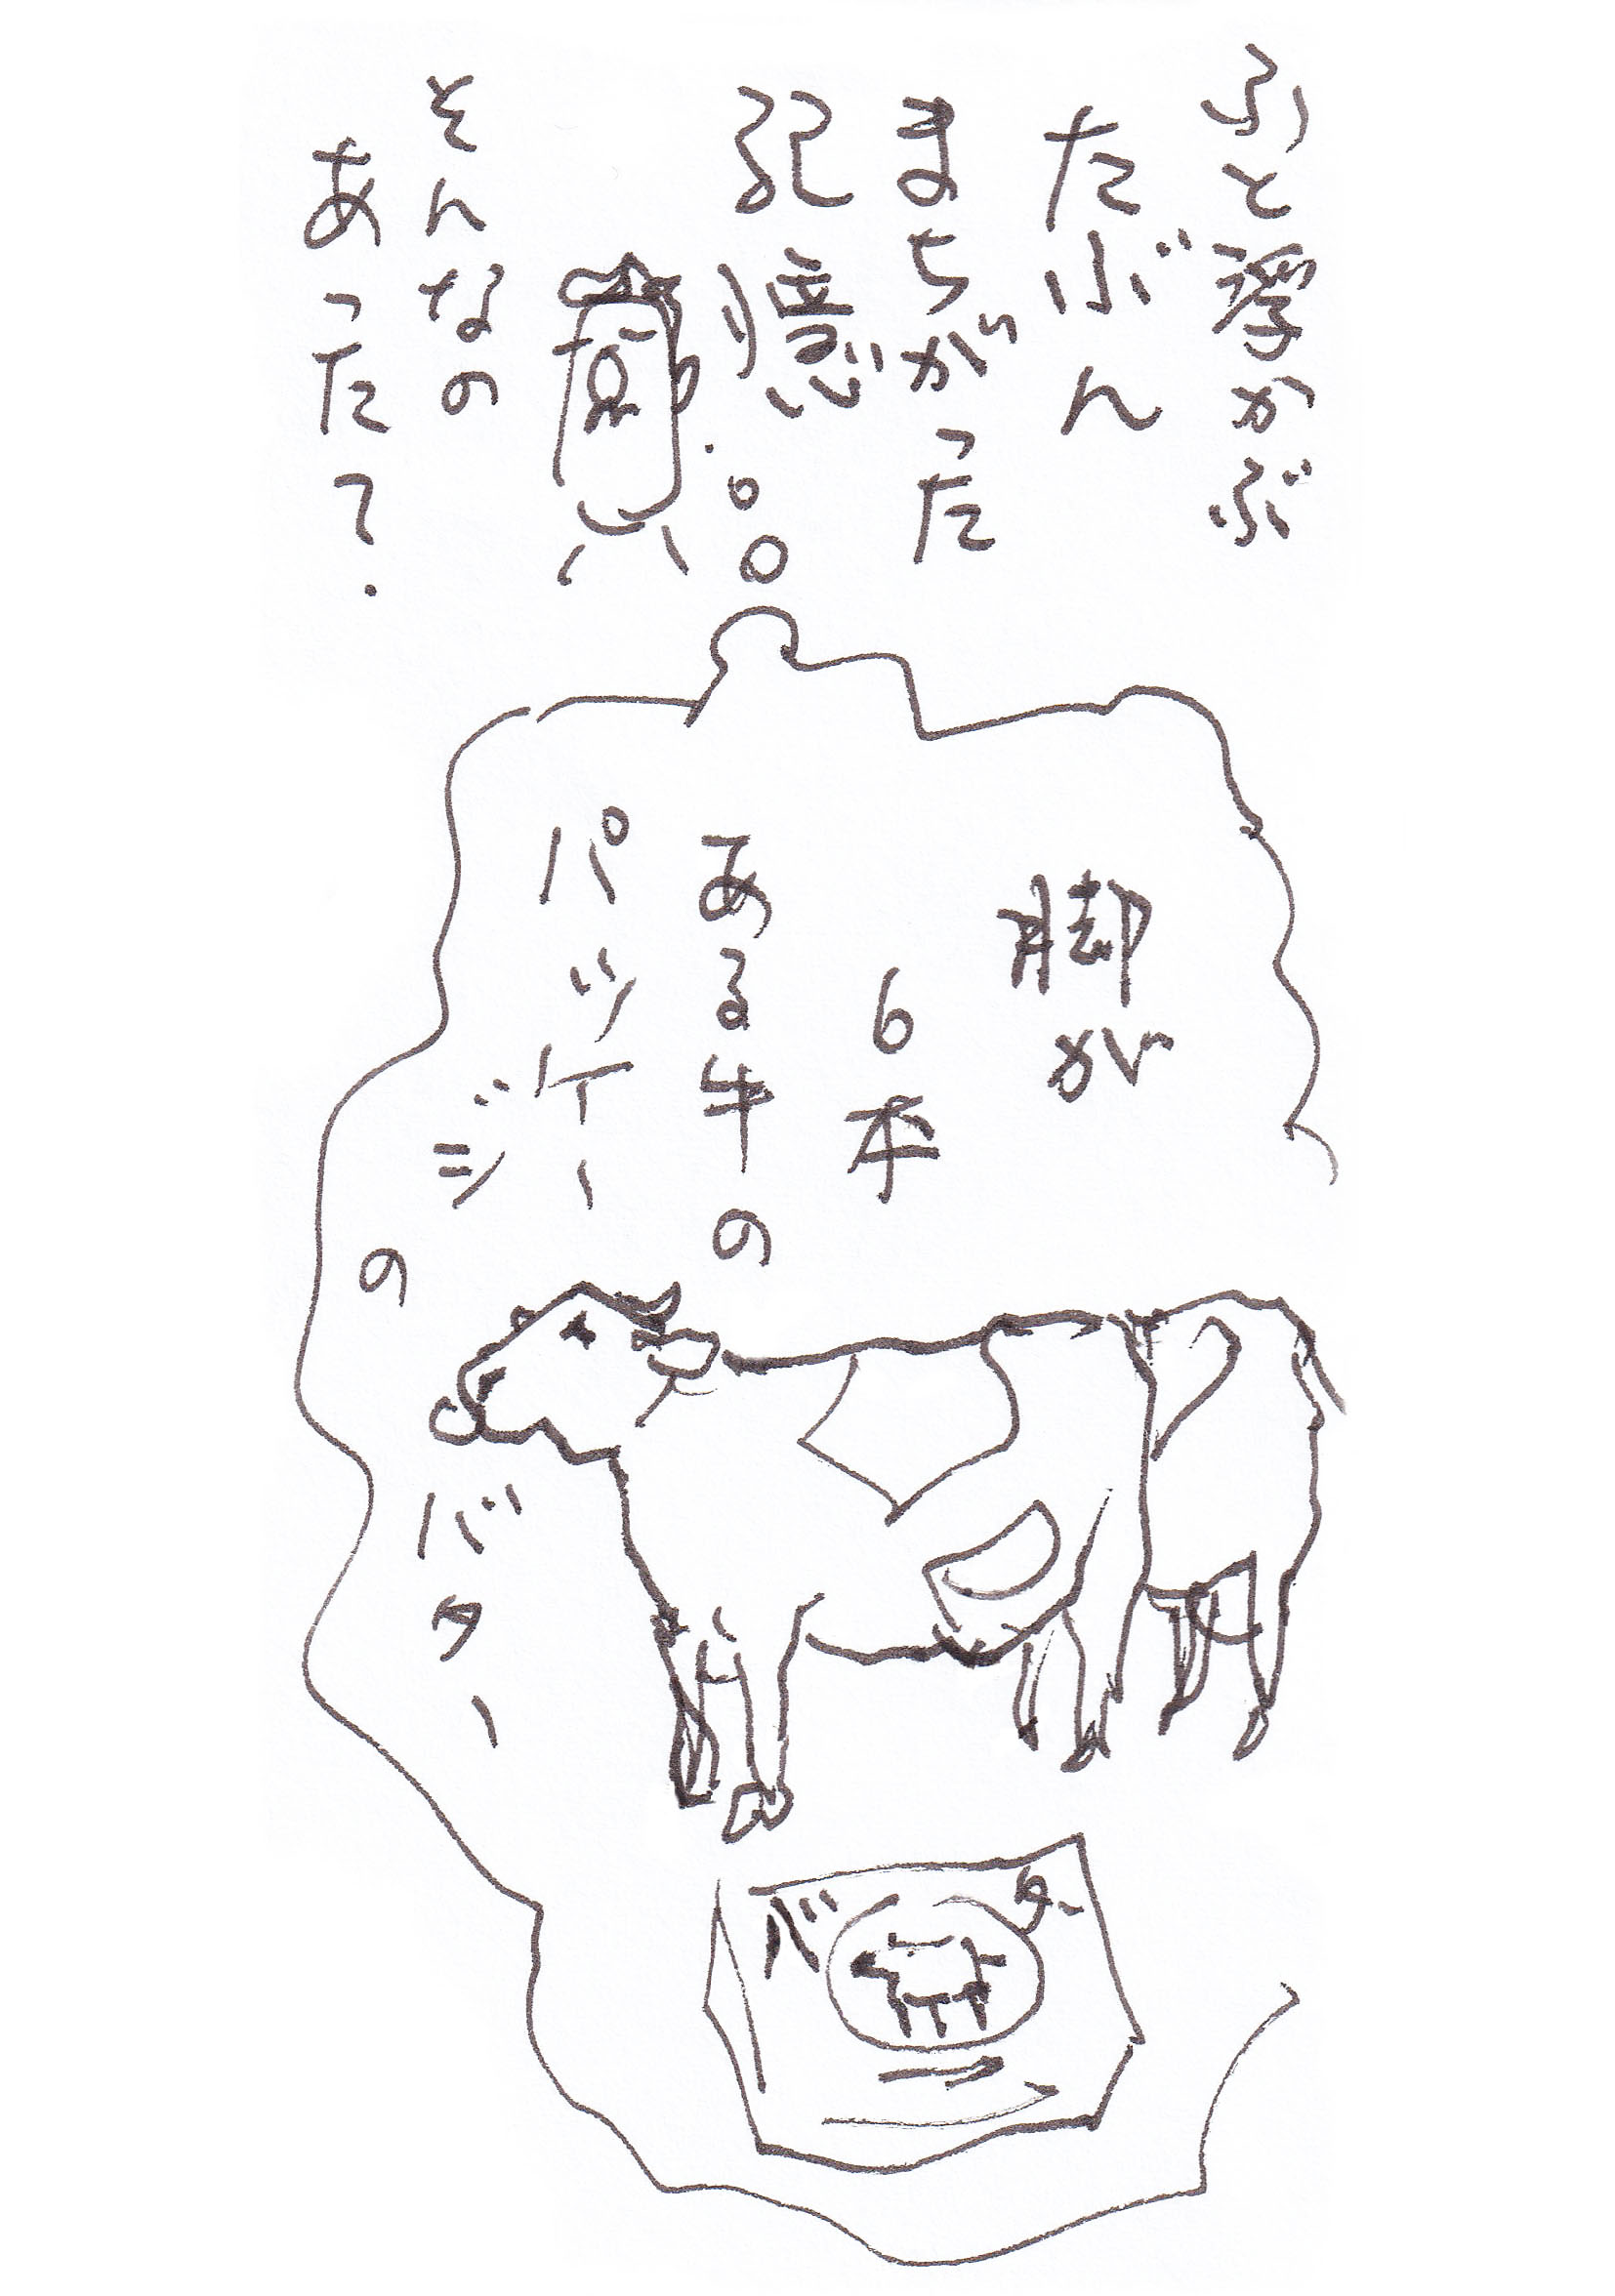 ふと浮かぶ
たぶん
まちがった
記憶
そんなの
あった?
脚が
6本
ある牛の
パッケー
ジ
の
バター
バター